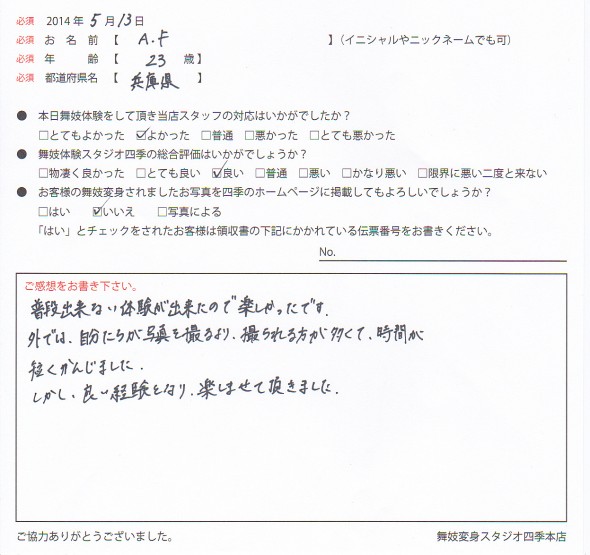 必須 2014 年 5 月 13 日
必須 お 名 前 【 A.F 】(イニシャルやニックネームでも可)
必須 年 齢 【 23 歳】
必須 都道府県名 【 兵庫県 】
● 本日舞妓体験をして頂き当店スタッフの対応はいかがでしたか？
□とてもよかった ☑よかった □普通 □悪かった □とても悪かった
● 舞妓体験スタジオ四季の総合評価はいかがでしょうか？
□物凄く良かった □とても良い ☑良い □普通 □悪い □かなり悪い □限界に悪い二度と来ない
● お客様の舞妓変身されましたお写真を四季のホームページに掲載してもよろしいでしょうか？
□はい ☑いいえ □写真による
「はい」とチェックをされたお客様は領収書の下記にかかれている伝票番号をお書きください。
No.
ご感想をお書き下さい。
普段出来ない体験が出来たので楽しかったです.
外では、自分たちが写真を撮るより、撮られる方が多くて、時間が
短くかんじました.
しかし、良い経験となり、楽しませて頂きました.
ご協力ありがとうございました。
舞妓変身スタジオ四季本店